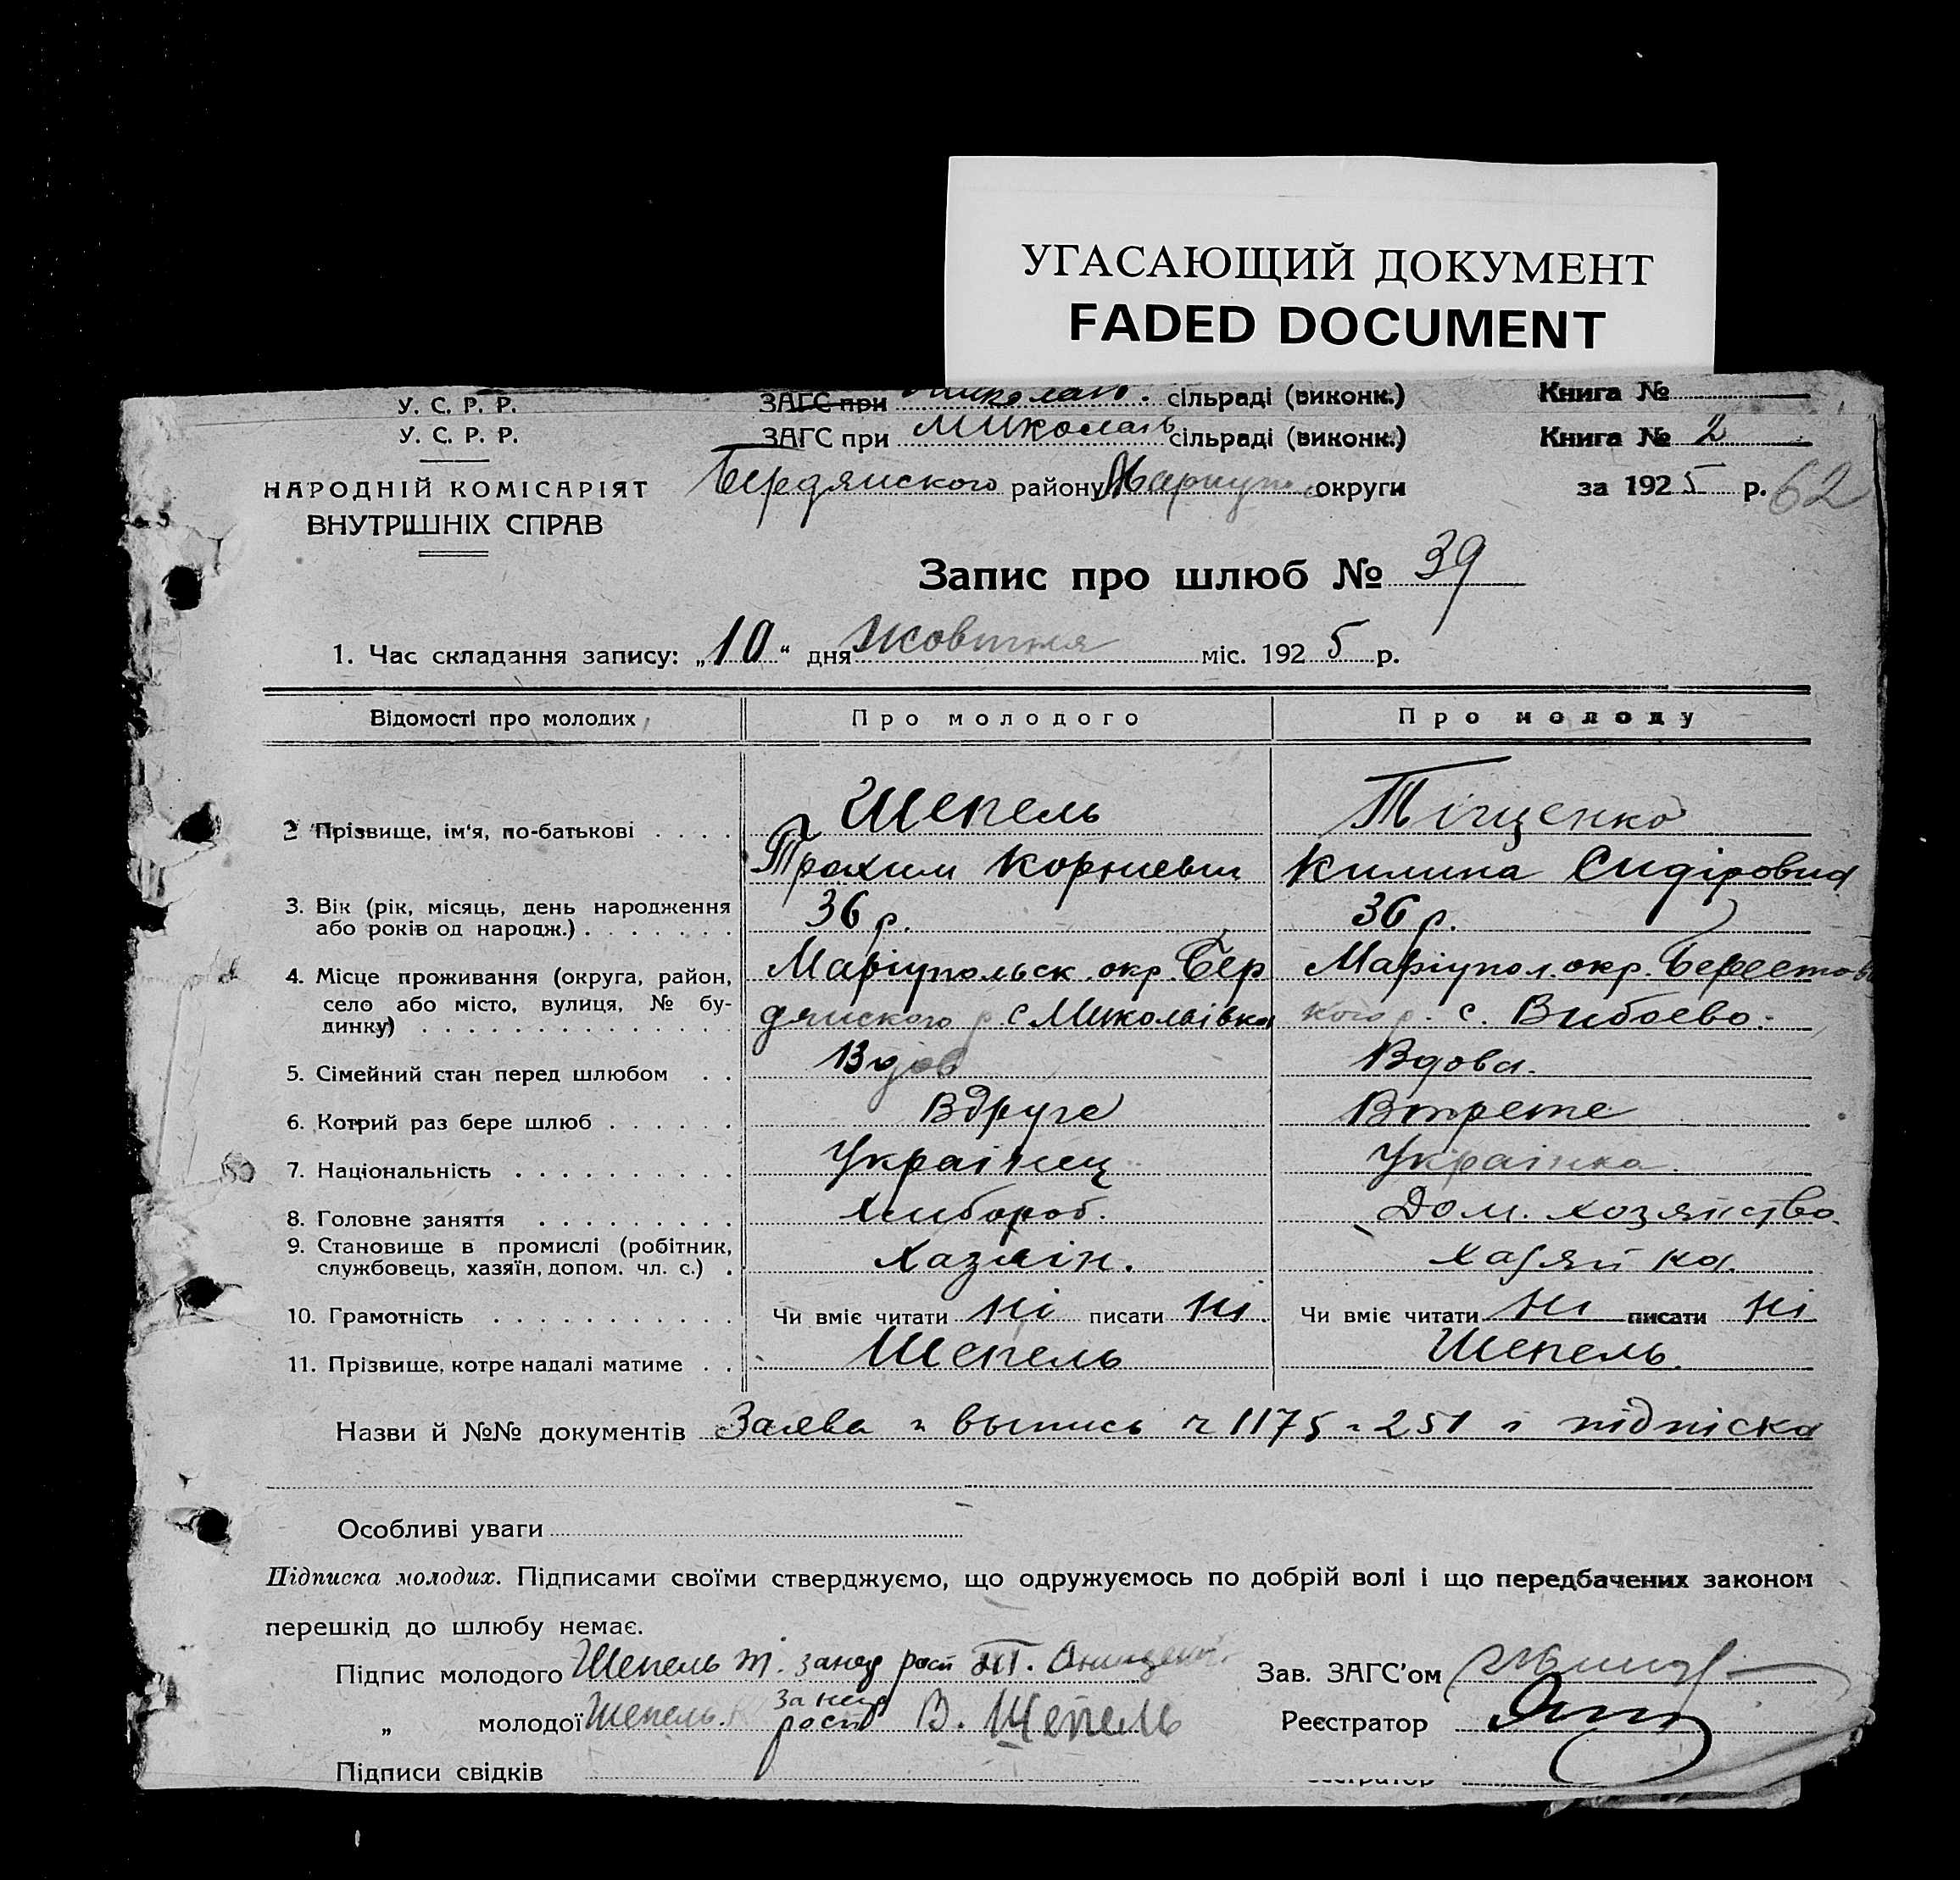 УГАСАЮЩИЙ ДОКУМЕНТ
FADED DOCUMENT
У. С. Р. Р. ЗАГС при сільраді (виконк.) Книга №
У. С. Р. Р. ЗАГС при Миколаїв сільраді (виконк.) Книга № 2
НАРОДНІЙ КОМІСАРІЯТ Бердянского району округи за 1925 р. 62
ВНУТРІШНІХ СПРАВ
Запис про шлюб № 39
1. Час складання запису: „10“ дня Жовтня міс. 1925 р.
Відомості про молодих Про молодого Про молоду
2 Прізвище, ім'я, по-батькові . . . . Шепель Тіщенко
Трохим Корниевич Килина Сидіровна
3. Вік (рік, місяць, день народження 36 р. 36 р.
або років од народж.) . . . . . . .
4. Місце проживання (округа, район, Маріупольск. окр. Бер Маріупол. окр. Берестовс
село або місто, вулиця, № бу- дянского р. с Миколаівка кого р. с. Вибоево.
динку) . . . . . . . . . . . . . .
5. Сімейний стан перед шлюбом . . Вдов Вдова.
6. Котрий раз бере шлюб . . . . . . Вдруге Втрете
7. Національність . . . . . . . . . . Українец Українка.
8. Головне заняття . . . . . . . . . Хлибороб. Дом. хозяйство.
9. Становище в промислі (робітник, Хазяін. Хазяйка.
службовець, хазяїн, допом. чл. с.) .
10. Грамотність . . . . . . . . . . . Чи вміє читати Ні писати Ні. Чи вміє читати Ні писати Ні
11. Прізвище, котре надалі матиме . . Шепель Шепель.
Назви й №№ документів Заява и выпись ч 1175 и 251 і підпіска
Особливі уваги
Підписка молодих. Підписами своїми стверджуємо, що одружуємось по добрій волі і що передбачених законом
перешкід до шлюбу немає.
Підпис молодого Шепель Т. за Зав. ЗАГС'ом
„ молодої Шепель. В. Щепель Реєстратор
Підписи свідків